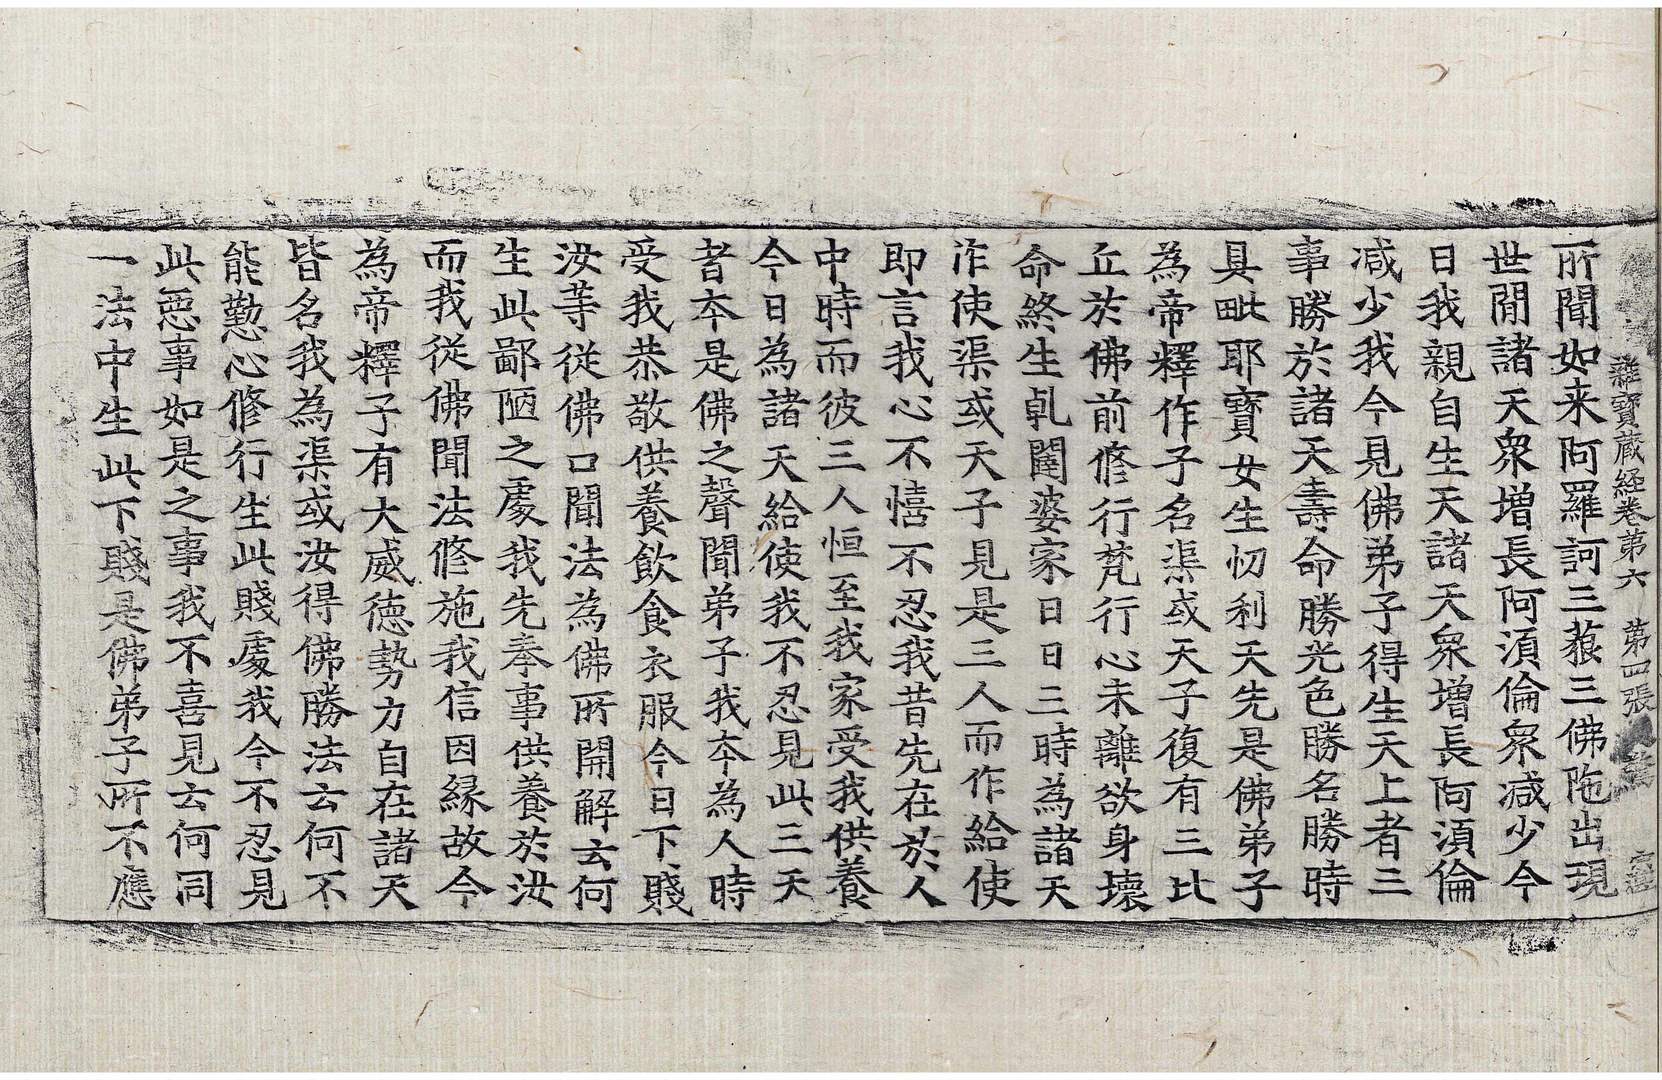 雜寶藏經卷第六 第四張
所聞如来阿羅訶三藐三佛陁出現
世間諸天衆增長阿湏倫衆减少今
日我親自生天諸天衆增長阿湏倫
减少我今見佛弟子得生天上者三
事勝於諸天壽命勝光色勝名勝時
具毗耶寶女生忉利天先是佛弟子
為帝釋作子名渠或天子復有三比
丘於佛前修行梵行心未離欲身壞
命終生乹闥婆家日日三時為諸天
作使渠或天子見是三人而作給使
即言我心不憘不忍我昔先在於人
中時而彼三人恒至我家受我供養
今日為諸天給使我不忍見此三天
者本是佛之聲聞弟子我本為人時
受我恭敬供養飲食衣服今日下賤
汝等從佛口聞法為佛所開解云何
生此鄙陋之處我先奉事供養於汝
而我從佛聞法修施我信因縁故今
為帝釋子有大威德勢力自在諸天
皆名我為渠或汝得佛勝法云何不
能勤心修行生此賤處我今不忍見
此惡事如是之事我不喜見云何同
一法中生此下賤是佛弟子所不應